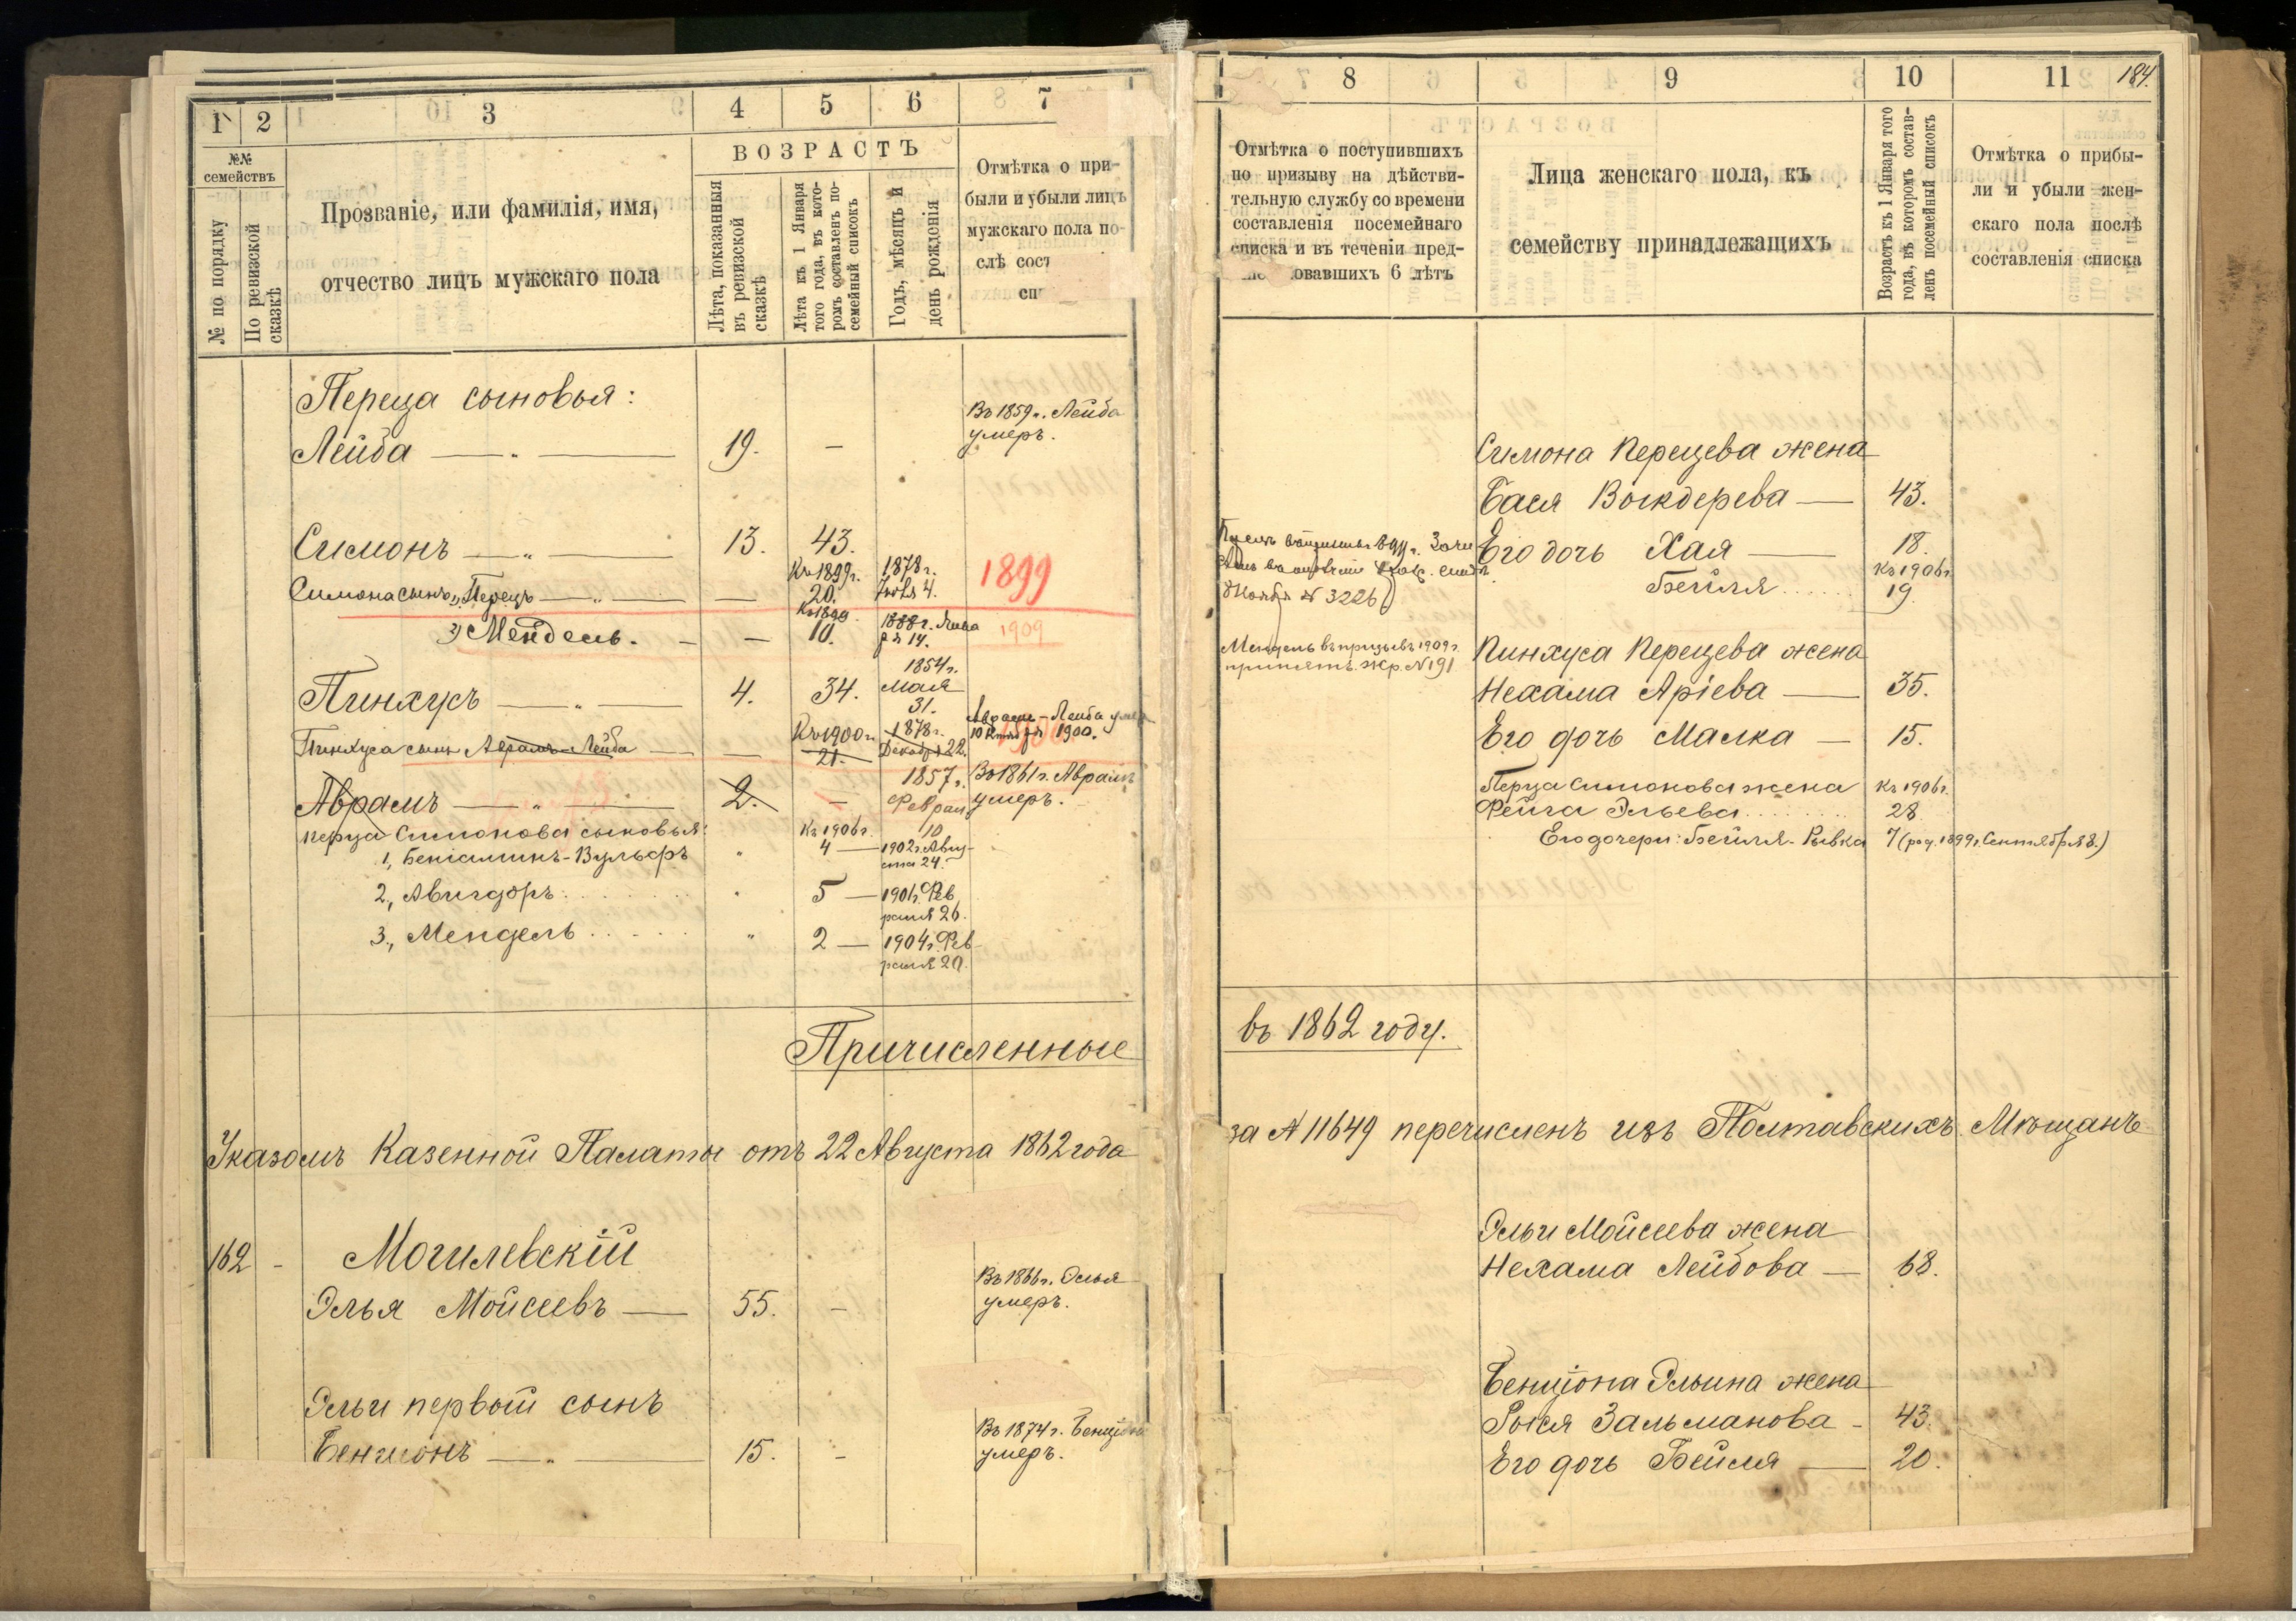 1 2 3 4 5 6 7
№№ семействъ
№ по порядку
По ревизской сказкѣ
Прозваніе, или фамилія, имя,
отчество лицъ мужскаго пола
ВОЗРАСТЪ
Лѣта, показанныя
въ ревизской
сказкѣ
Лѣта къ 1 Января
того года, въ кото-
ромъ составленъ по-
семейный списокъ
Годъ, мѣсяцъ и
день рожденія
Отмѣтка о при-
были и убыли лицъ
мужскаго пола по-
слѣ сост
сп
Переца сыновья:
Лейба — „ — 19. —
Въ 1859 г. Лейба
умеръ.
Симонъ — „ — 13. 43.
Симона сынъ 1) Перецъ — „ — — Къ 1899 г. 20. 1878 г. 4. 1899
2) Мендель. — — Къ 1899 10. 1888 г. 14. 1909
Пинхусъ — „ — 4. 34. 1854 г. Мая 31.
Пинхуса сынъ Аврамъ-Лейба — — Къ 1900 г. 21. 1878 г. Декабря 22.
Аврамъ-Лейба умеръ
1900.
Аврамъ — „ — 2. — 1857 г. Феврал 10
Въ 1861 г. Аврамъ
умеръ.
Перца Симонова сыновья: Къ 1906 г.
1, Беніаминъ-Вульфъ „ 4 — 1902 г. Авгу-
ста 24.
2, Авигдоръ „ 5 — 1901 г. Фев
раля 26.
3, Мендель „ 2 — 1904 г. Фев
раля 20.
Причисленные
Указомъ Казенной Палаты отъ 22 Августа 1862 года
162 - Могилевскій
Элья Мойсеевъ — 55. —
Въ 1866 г. Элья
умеръ.
Эльи первый сынъ
Бенціонъ — „ — 15. -
Въ 1874 г. Бенціонъ
умеръ.
8 9 10 11 184.
Отмѣтка о поступившихъ
по призыву на дѣйстви-
тельную службу со времени
составленія посемейнаго
списка и въ теченіи пред-
овавшихъ 6 лѣтъ
Лица женскаго пола, къ
семейству принадлежащихъ
Возрастъ къ 1 Января того
года, въ которомъ состав-
ленъ посемейный списокъ
Отмѣтка о прибы-
ли и убыли жен-
скаго пола послѣ
составленія списка
Симона Перецева жена
Бася Выкдерева — 43.
Его дочь Хая — 18.
Къ 1906 г.
Бейля 19
Ноября № 3226
Мендель въ призывъ 1909 г.
принятъ. жр. № 191
Пинхуса Перецева жена
Нехама Аріева — 35.
Его дочь Малка — 15.
Перца Симонова жена Къ 1906 г.
Фейга Эльева 28.
Его дочери: Бейля-Рывка 7 (род. 1899 г. Сентября 8.)
въ 1862 году.
за № 11649 перечисленъ изъ Полтавскихъ Мѣщанъ
Эльи Мойсеева жена
Нехама Лейбова — 68.
Бенціона Эльина жена
Рыся Зальманова - 43.
Его дочь Бейля — 20.